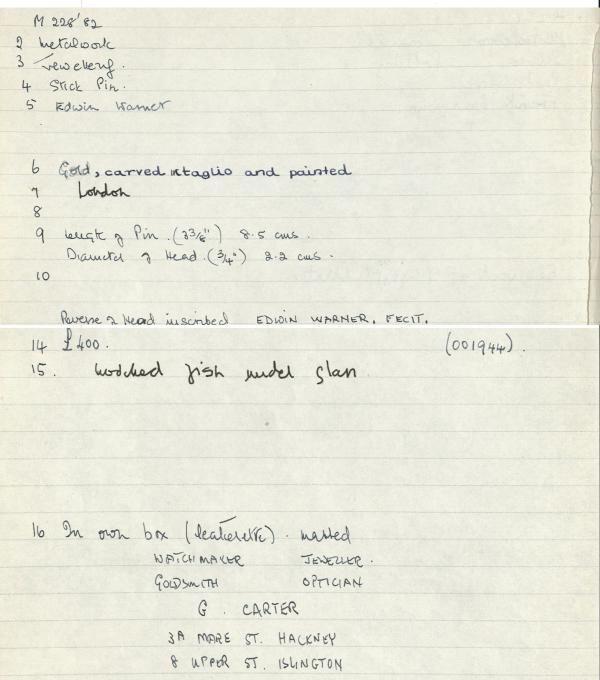 M 228'82
2 Metalwork
3 Jewellery.
4 Stick Pin.
5 Edwin Warner
6 Gold, carved intaglio and painted
7 London
8
9 Length of Pin. (3 3/8") 8.5 cms.
Diameter of Head. (3/4") 2.2 cms.
10
Reverse of Head inscribed EDWIN WARNER, FECIT.
14 £400. (001944).
15. hooked fish under glass
16 In own box (leatherette). marked
WATCHMAKER JEWELLER.
GOLDSMITH OPTICIAN
G. CARTER
3A MARE ST. HACKNEY
8 UPPER ST. ISLINGTON